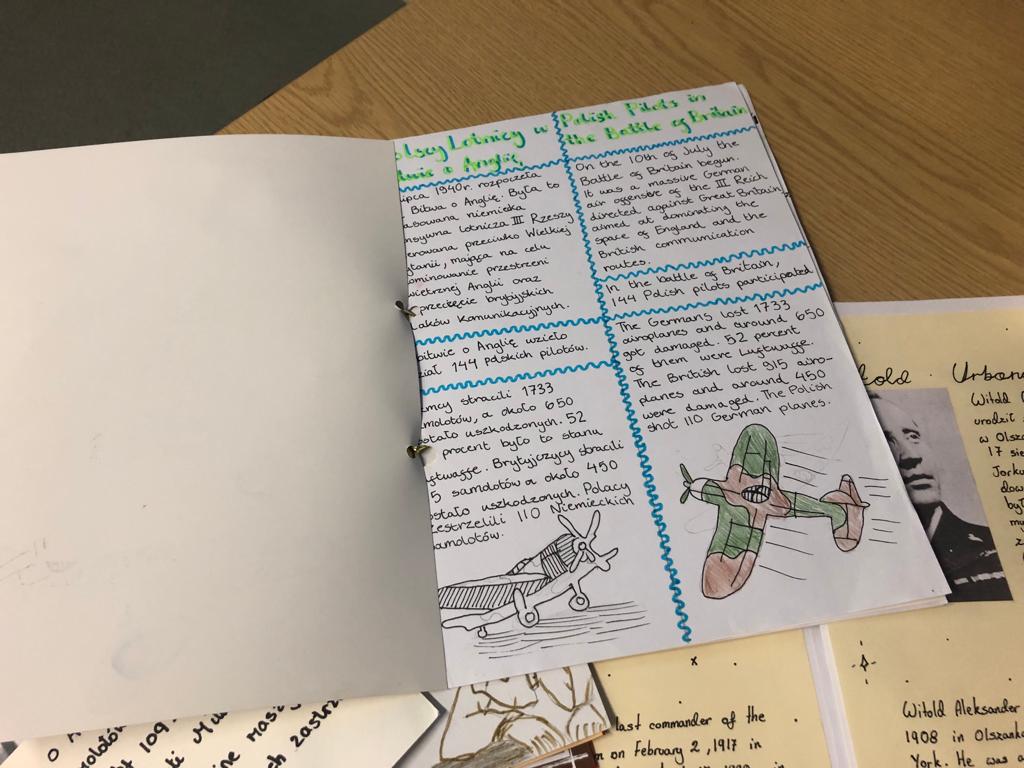 olscy Lotnicy w
twie o Anglię
ipca 1940r. rozpoczęła
Bitwa o Anglię. Była to
asowana niemiecka
nsywna lotnicza III Rzeszy
erowana przeciwko Wielkiej
tanii, mająca na celu
ominowanie przestrzeni
wietrznej Anglii oraz
przecięcie brytyjskich
laków komunikacyjnych.
bitwie o Anglię wzięło
ział 144 polskich pilotów.
emcy stracili 1733
amolotów, a około 650
ostało uszkodzonych. 52
procent było to stanu
ftwaffe. Brytyjczycy stracili
5 samolotów a około 450
ostało uszkodzonych. Polacy
zestrzelili 110 Niemieckich
amolotów.
Polish Pilots in
the Battle of Britain
On the 10th of July the
Battle of Britain begun.
It was a massive German
air offensive of the III Reich
directed against Great Britain,
aimed at dominating the
space of England and the
British communication
routes.
In the battle of Britain,
144 Polish pilots participated
The Germans lost 1733
airoplanes and around 650
got damaged. 52 percent
of them were Luftwaffe.
The British lost 915 airo-
planes and around 450
were damaged. The Polish
shot 110 German planes.
told Urban
Witold
urodził
w Olsza
17 sie
Jorku
dow
był
my
Witold Aleksander
1908 in Olszank
York. He was a
last commander of the
on February 2, 1917 in